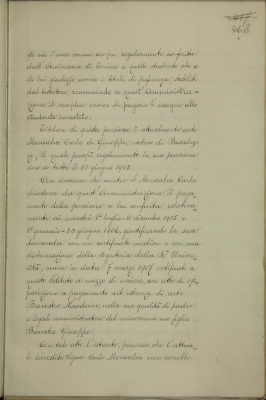 di cui l'anno venne sempre regolarmente conferita
dall'Università di Torino a quello studente che a
di lui giudizio aveva i titoli di preferenza, stabiliti
dal testatore, rimanendo a quest'Amministra-
zione il semplice carico di pagare l'assegno allo
studente investito.
Titolare di questa pensione è attualmente certo
Moncalvo Carlo di Giuseppe, nativo di
il quale percepì regolarmente la sua pensione
sino a tutto il 30 giugno 1905.
Ora avvenne che mentre il Moncalvo Carlo
chiedeva da quest'Amministrazione il paga-
mento della pensione a lui conferita, relativa-
mente ai semestri 1° luglio - 31 dicembre 1905 e
1° gennaio - 30 giugno 1906, giustificando la sua
domanda con un certificato medico e con una
dichiarazione della Segreteria della R. Univer-
sità, venne in data 7 marzo 1907 notificato a
questo Istituto a mezzo di usciere, un atto di op-
posizione a pagamento ad istanza di certo
Barosio nella sua qualità di padre
e legale amministratore del minorenne suo figlio
Barosio Giuseppe.
Con tale atto l'istante, premesso che l'attua-
le investito signor Carlo Moncalvo non avrebbe